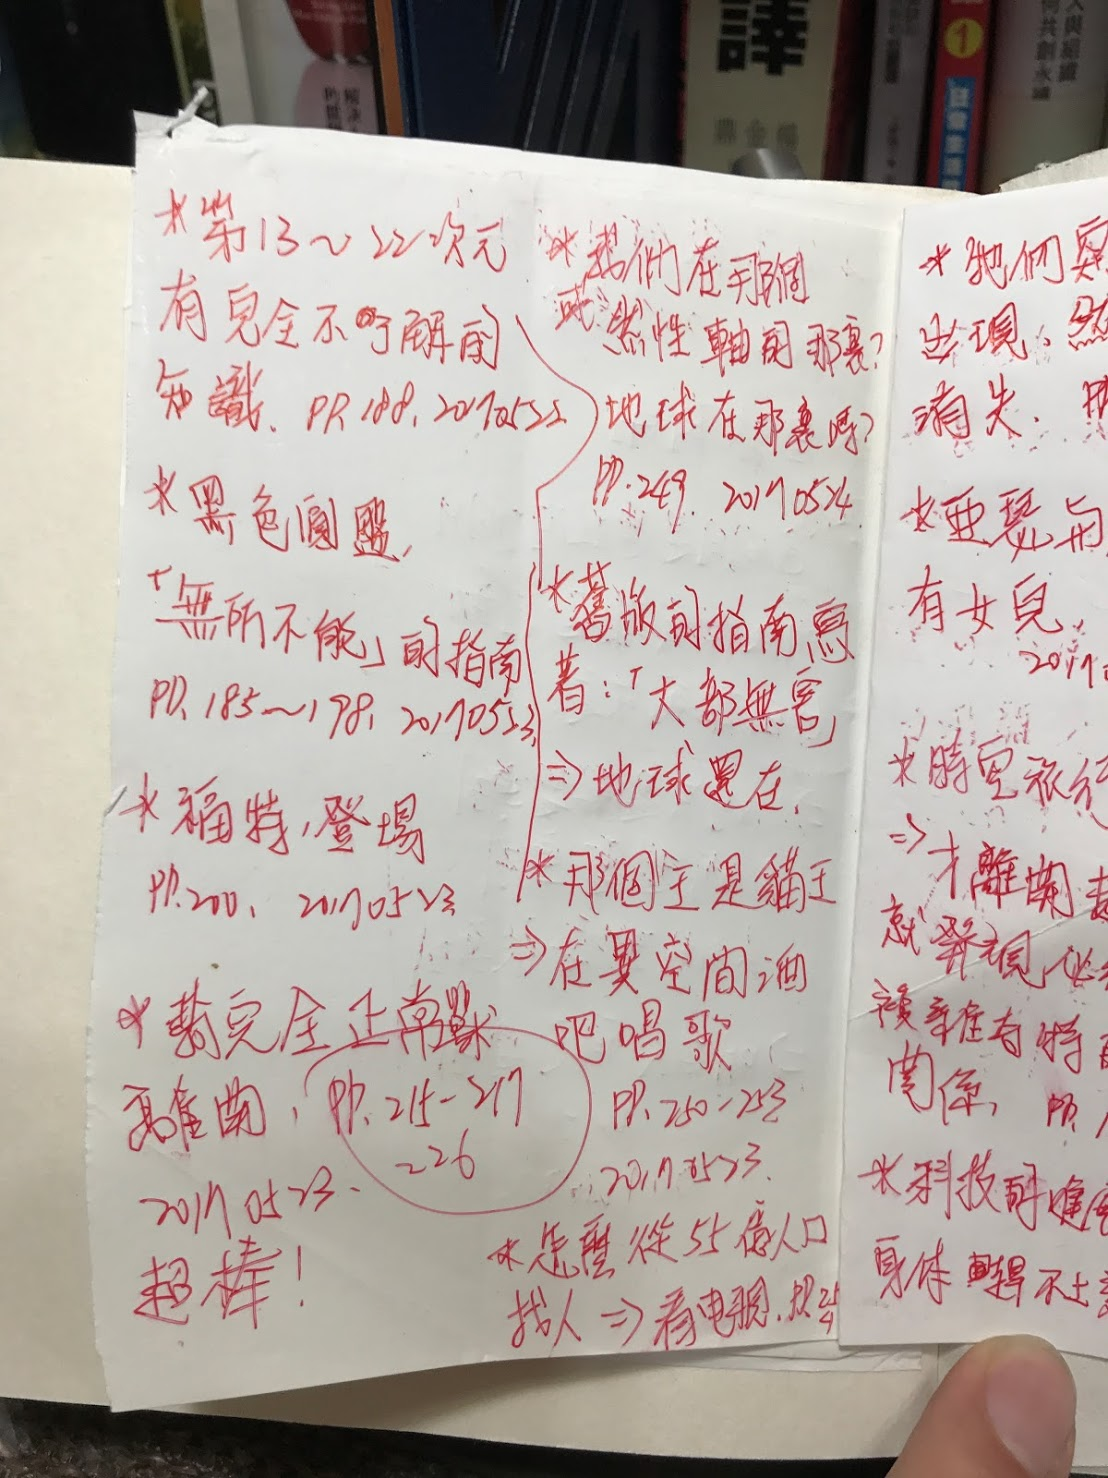 *第13～22次元
有完全不了解的
知識. PP.188, 20170522
*黑色圓盤,
「無所不能」的指南
PP.185～198, 20170523
*福特,登場
PP.200, 20170523
完全正常獸
離開, PP.215-217
226
20170523.
超棒!
*我們在那個
然性軸的那裏?
地球在那裏嗎?
PP.249 20170524
*舊版的指南寫
著:「大部無害」
⇒地球還在.
*那個王是貓王
⇒在異空間酒
吧唱歌
PP.250-253
20170523.
*怎麼從55億人口
找人⇒看电視. PP.254
*牠們突
出現、然
消失.
*亞瑟
有女兒,
2017
*時空旅行
⇒才離開
就發現
存在有特
關係, PP.
*科技
身体 不上
譯
1
人與組織
何共創永續